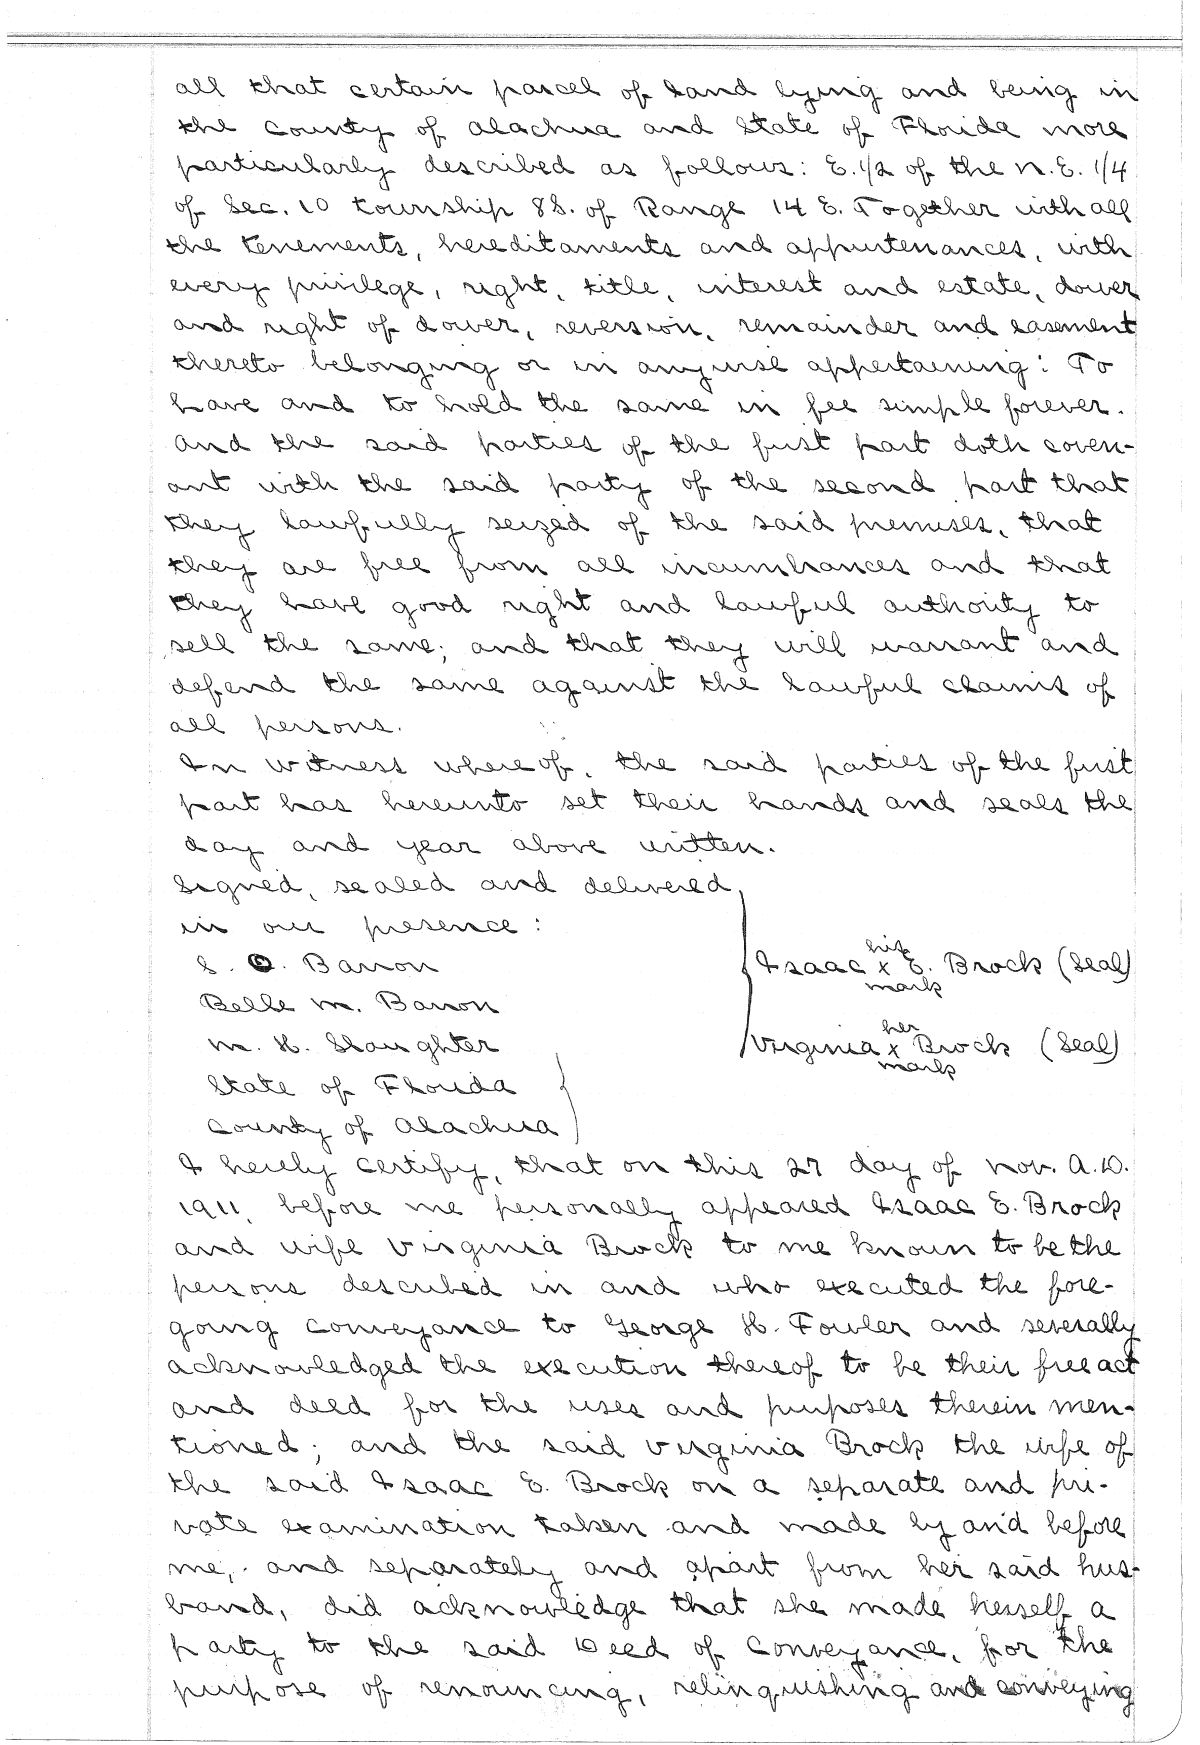 all that certain parcel of land lying and being in
the County of Alachua and State of Florida more
particularly described as follows: E.1/2 of the N.E. 1/4
of Sec. 10 township 8S. of Range 14 E. Together with all
the tenements, hereditaments and appurtenances, with
every privilege, right, title, interest and estate, dower
and right of dower, reversion, remainder and easement
thereto belonging or in anywise appertaining: To
have and to hold the same in fee simple forever.
And the said parties of the first part doth coven-
ant with the said party of the second part that
they lawfully seized of the said premises, that
they are free from all incumbrances and that
they have good right and lawful authority to
sell the same; and that they will warrant and
defend the same against the lawful claims of
all persons.
In witness whereof, the said parties of the first
part has hereunto set their hands and seals the
day and year above written.
Signed, sealed and delivered,
in our presence:
S. O. Barron
his
Isaac x E. Brock (Seal)
mark
Belle M. Barron
M. H. Slaughter
her
Virginia x Brock (Seal)
mark
State of Florida
County of Alachua
I hereby certify, that on this 27 day of Nov. A.D.
1911, before me personally appeared Isaac E. Brock
and wife Virginia Brock to me known to be the
persons described in and who executed the fore-
going conveyance to George H. Fowler and severally
acknowledged the execution thereof to be their free act
and deed for the uses and purposes therein men-
tioned; and the said Virginia Brock the wife of
the said Isaac E. Brock on a separate and pri-
vate examination taken and made by and before
me, and separately and apart from her said hus-
band, did acknowledge that she made herself a
party to the said Deed of Conveyance, for the
purpose of renouncing, relinquishing and conveying